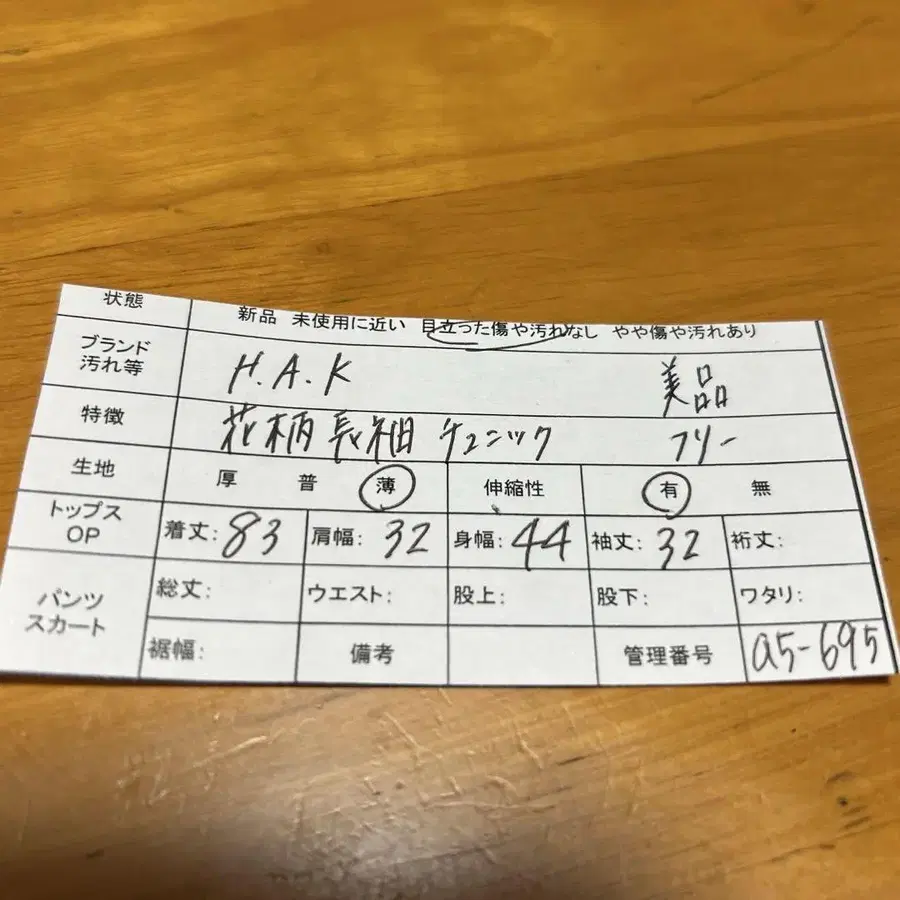 状態 新品 未使用に近い 目立った傷や汚れなし やや傷や汚れあり
ブランド
汚れ等 H.A.K 美品
特徴 花柄長袖チュニック フリー
生地 厚 普 薄 伸縮性 有 無
トップス
OP 着丈:83 肩幅:32 身幅:44 袖丈:32 裄丈:
パンツ
スカート 総丈: ウエスト: 股上: 股下: ワタリ:
裾幅: 備考 管理番号 a5-695